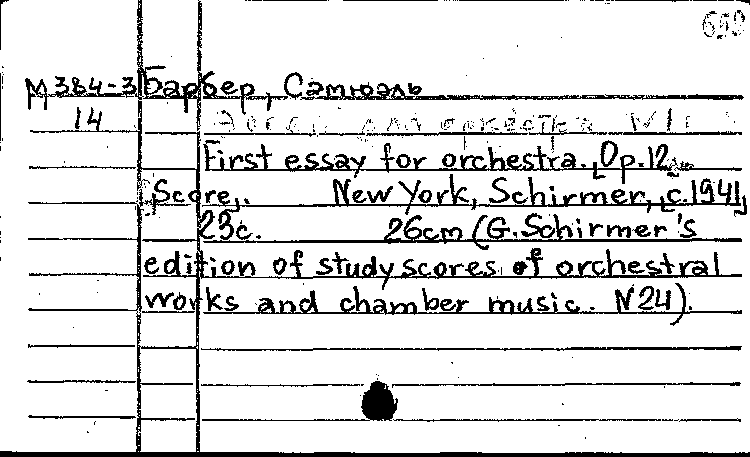 652
М 384-3 Барбер, Сэмюэль
14 Эссей для оркестра №1
First essay for orchestra. [Op.12]
[Score]. New York, Schirmer, [c.1941]
23с. 26cm (G. Schirmer's
edition of study scores of orchestral
works and chamber music. N24).